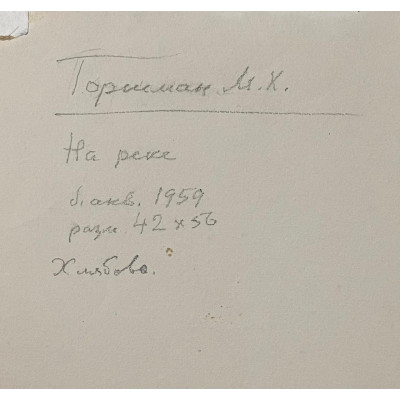 Горшман М.Х.
На реке
б. акв. 1959
разм 42 x 56
Хлябово.